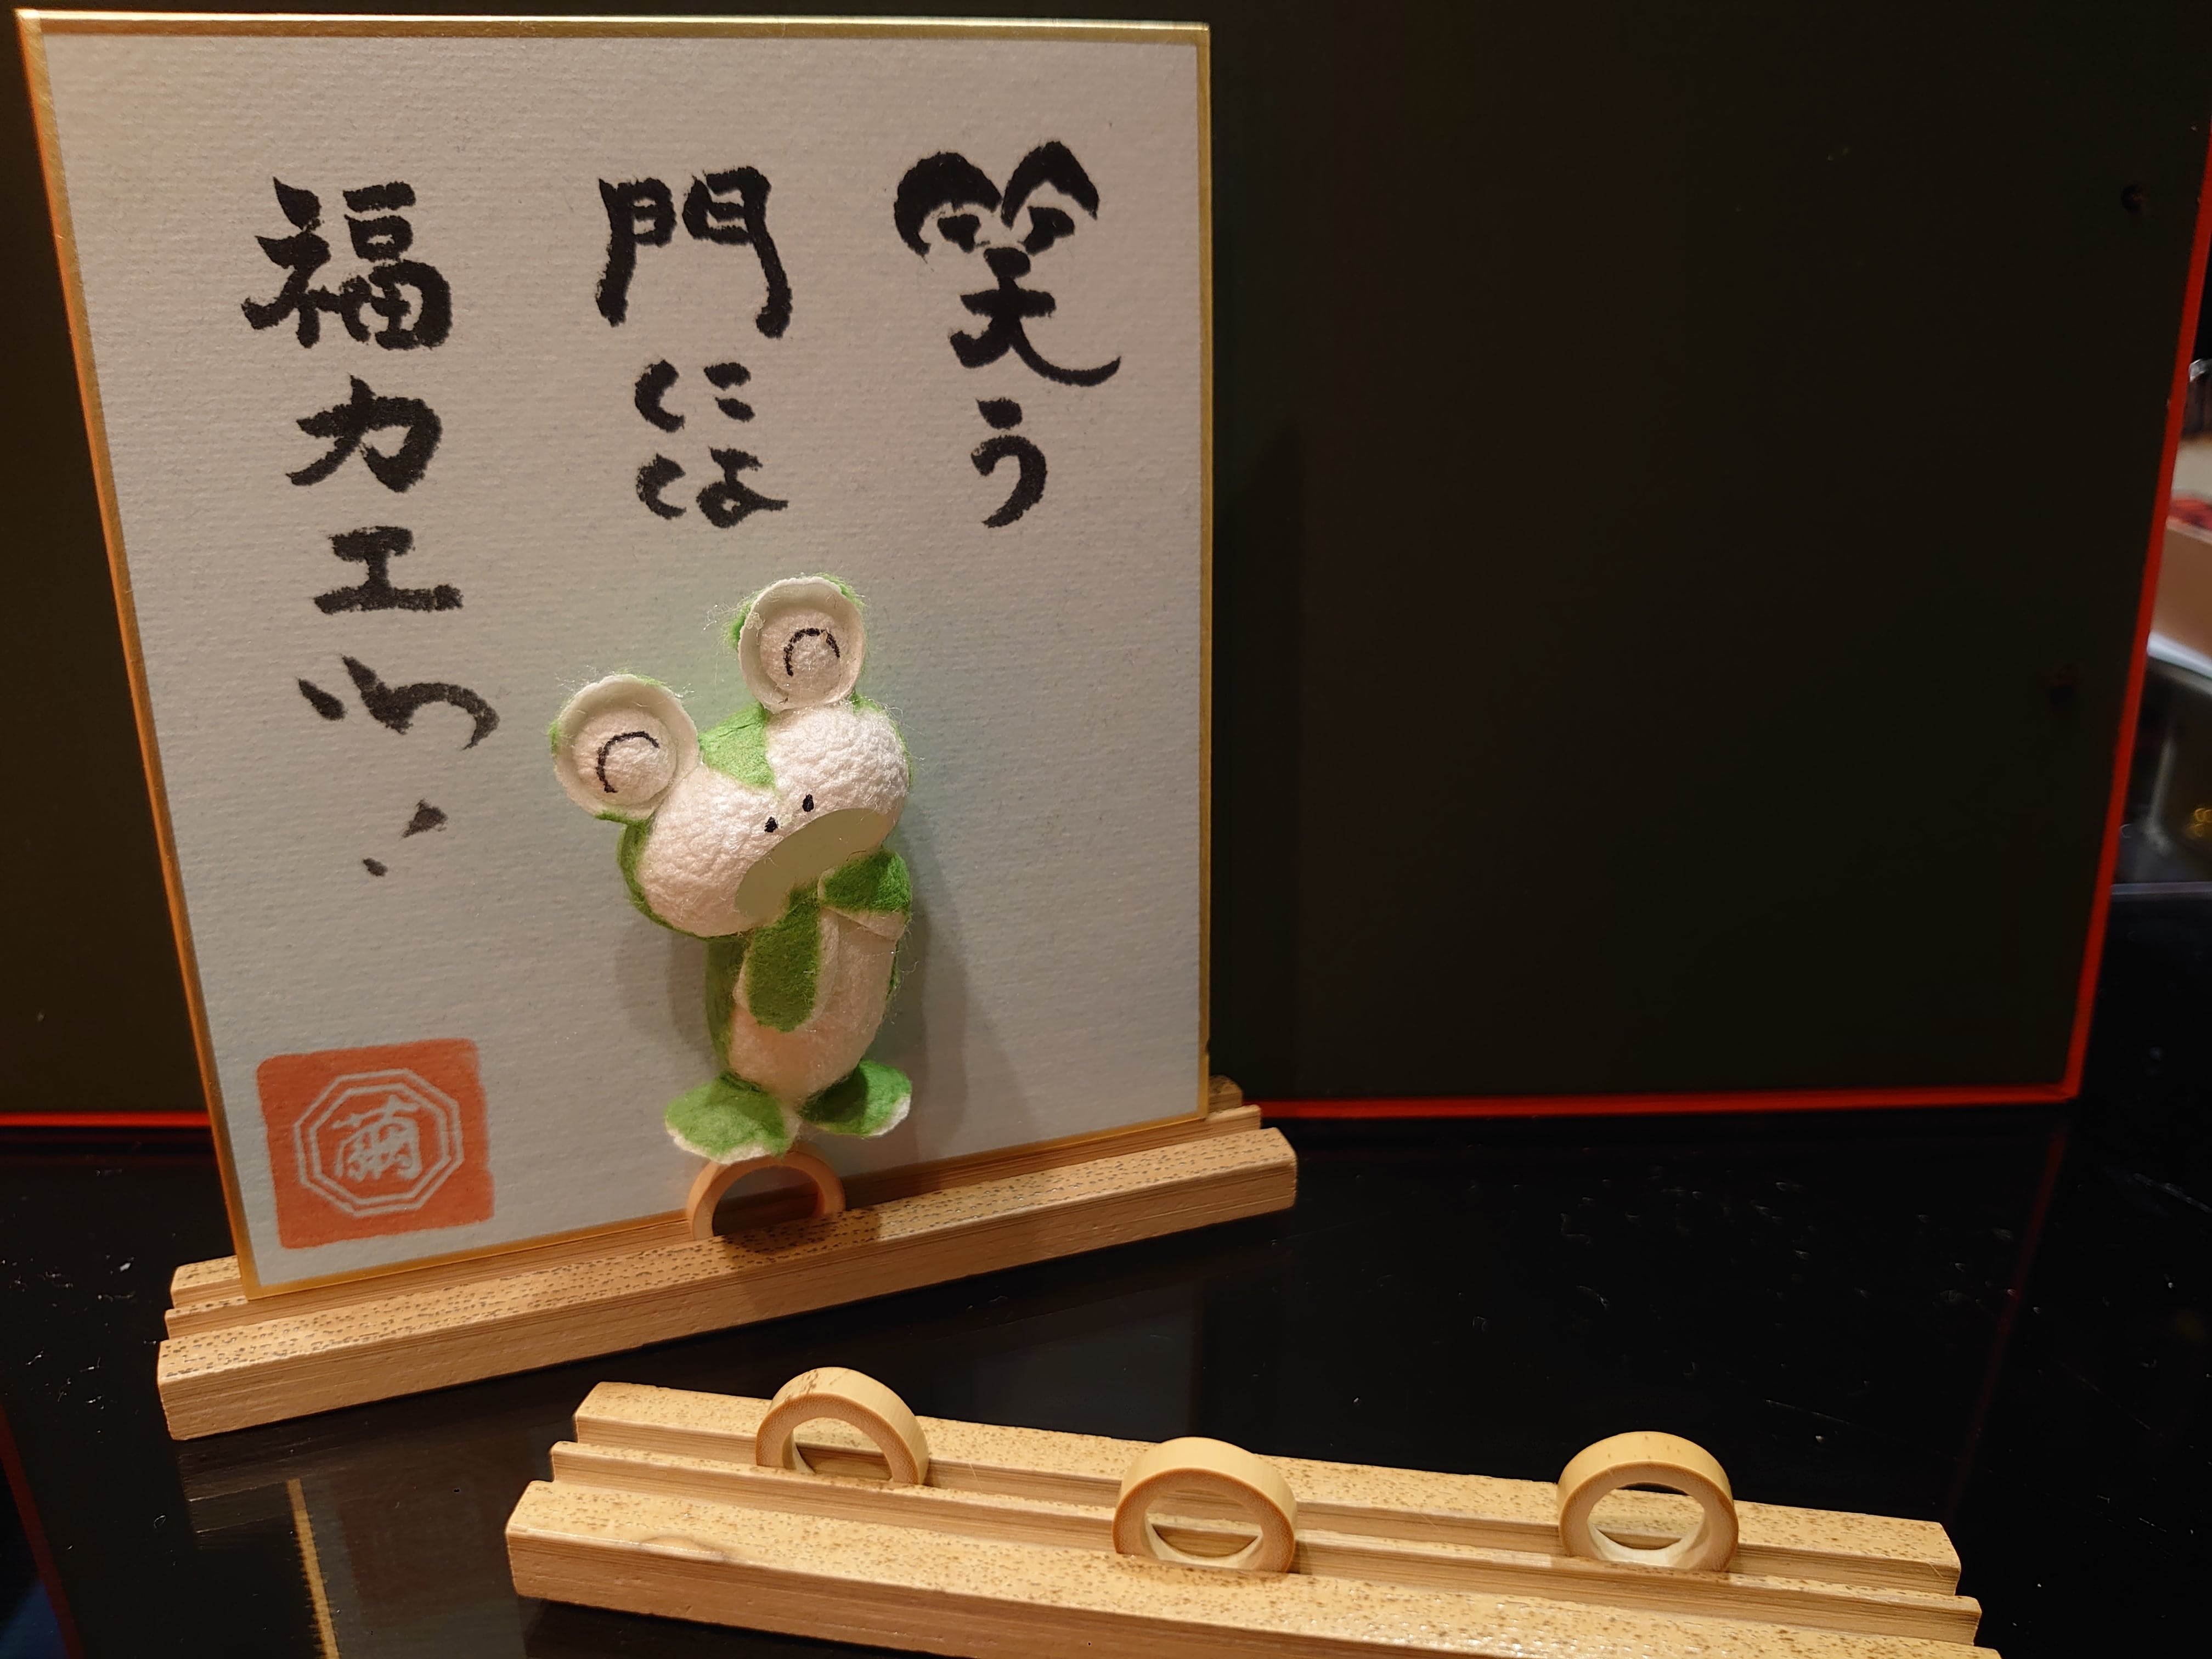 笑う
門には
福カエル
繭